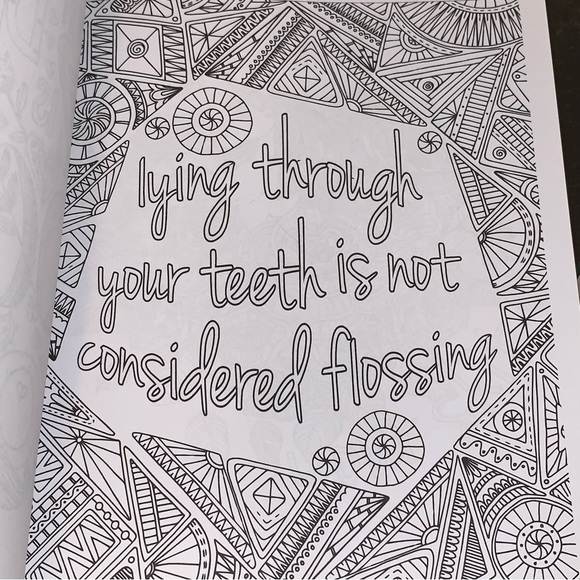 lying through
your teeth is not
considered flossing